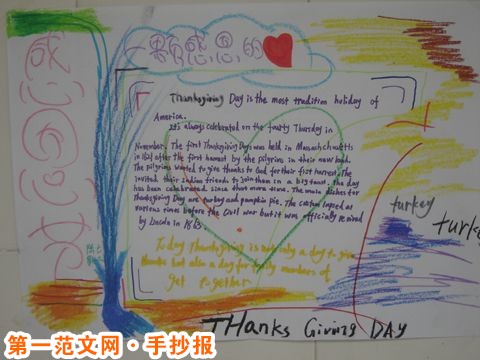 一颗感恩的
感
恩
Thanksgiving Day is the most tradition holiday of
America.
It's always celebrated on the fourty Thursday in
November. The first Thanksgiving Days was held in Massachusetts
in 1621 after the first harvest by the pilgrims in their new land.
The pilgrims wanted to give thanks to God for their first harvest. The
invited their indian friends to join them in a big feast. The day
has been celebrated since that more time. The main dishes for
Thanksgiving Day are turkey and pumpkin pie. The custom lapsed at
various times before the Civil War but it was officially revived
by Lincoln in 1863.
Today Thanksgiving is not only a day to give
thanks but also a day for family members of
get together
turkey
turkey
THanks Giving DAY
第一范文网·手抄报